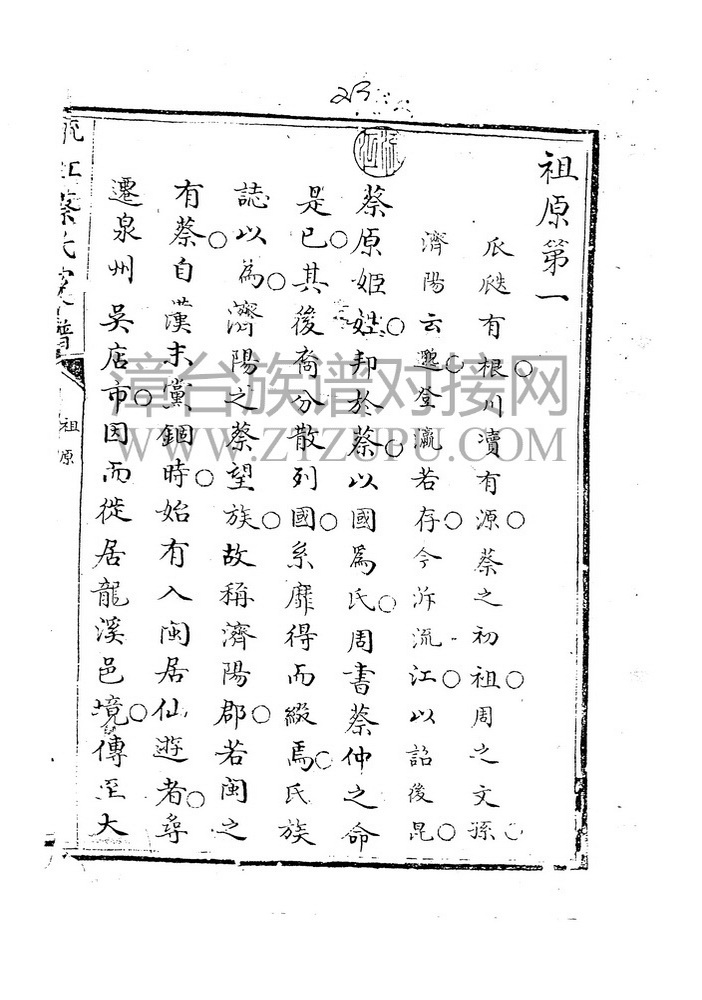 23
祖原第一
瓜瓞有根川瀆有源蔡之初祖周之文孫
濟陽云邈登瀛若存今泝流江以詔後昆
蔡原姬姓邦於蔡以國爲氏周書蔡仲之命
是已其後裔分散列國系靡得而綴焉氏族
誌以為濟陽之蔡望族故稱濟陽郡若閩之
有蔡自漢末黨錮時始有入閩居仙遊者尋
遷泉州吳店市因而徙居龍溪邑境傳至大
江蔡氏家譜
祖原
漳台族谱对接网
WWW.ZTZUPU.COM